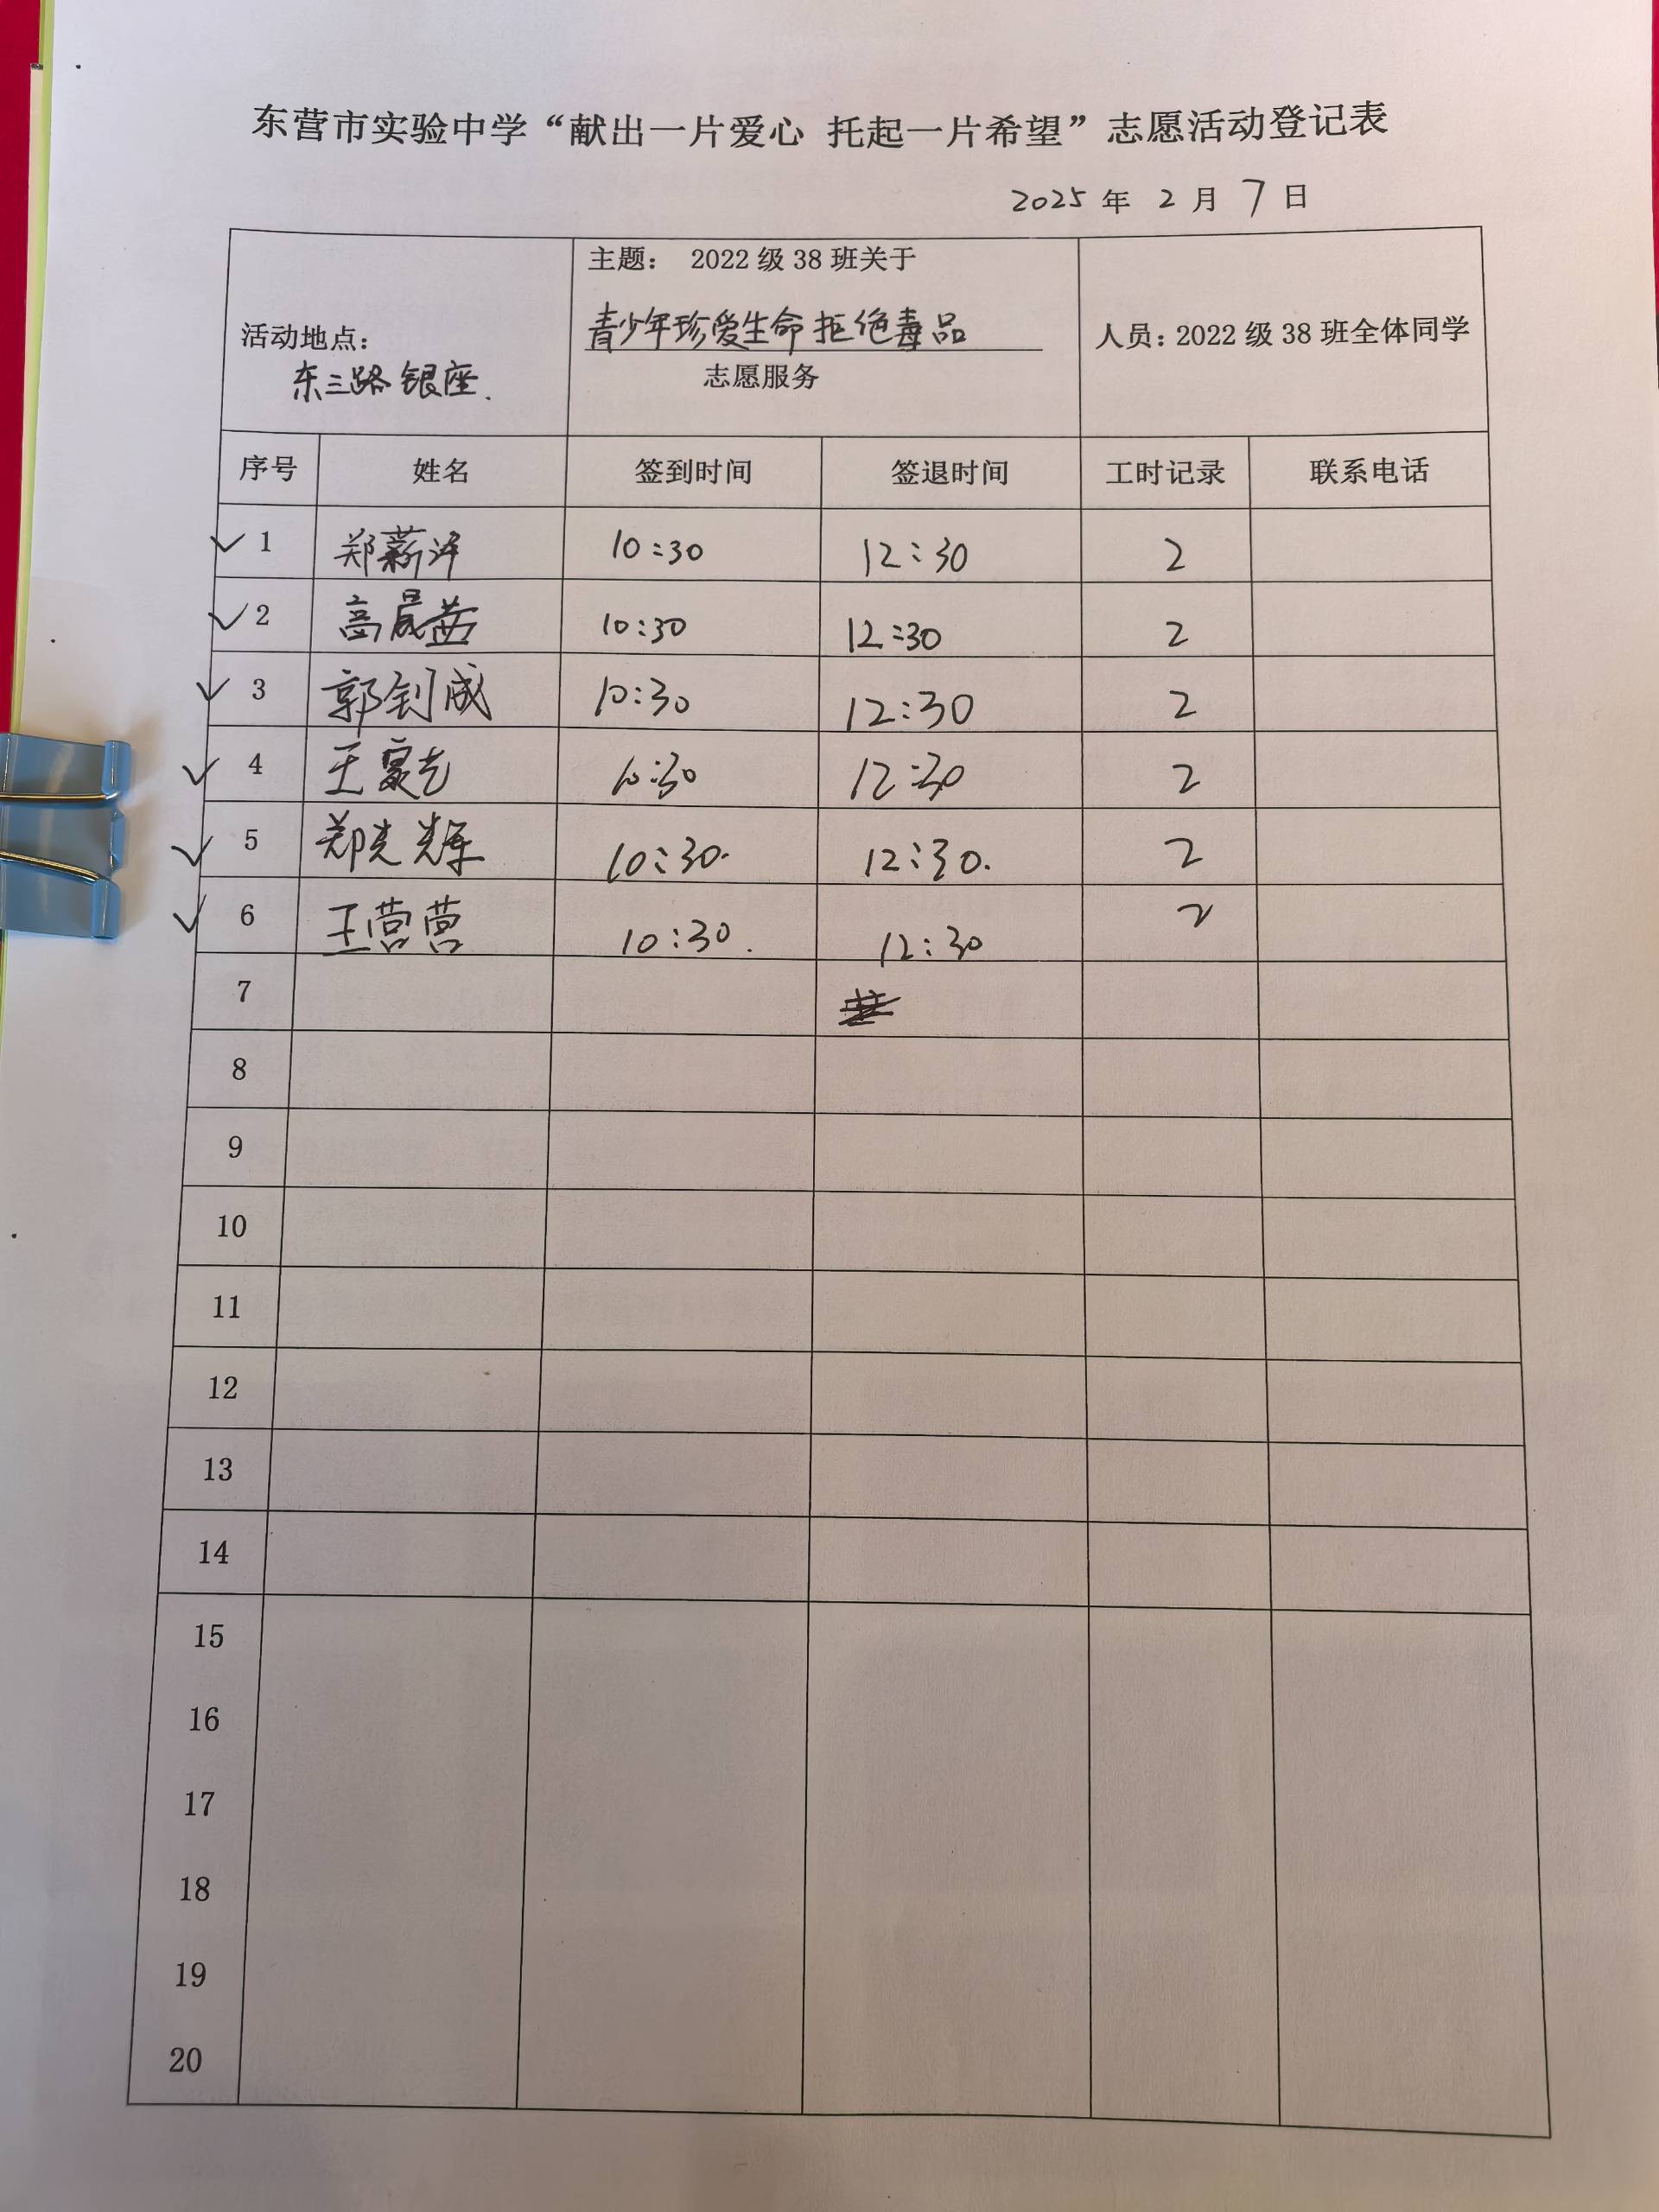 东营市实验中学“献出一片爱心 托起一片希望”志愿活动登记表
2025 年 2 月 7 日
活动地点：
东三路银座.
主题： 2022 级 38 班关于
青少年珍爱生命拒绝毒品
志愿服务
人员：2022 级 38 班全体同学
序号 姓名 签到时间 签退时间 工时记录 联系电话
1 郑薪洋 10:30 12:30 2
2 高晨茜 10:30 12:30 2
3 郭钊成 10:30 12:30 2
4 王 10:30 12:30 2
5 郑光辉 10:30. 12:30. 2
6 王营营 10:30. 12:30 2
7
8
9
10
11
12
13
14
15
16
17
18
19
20